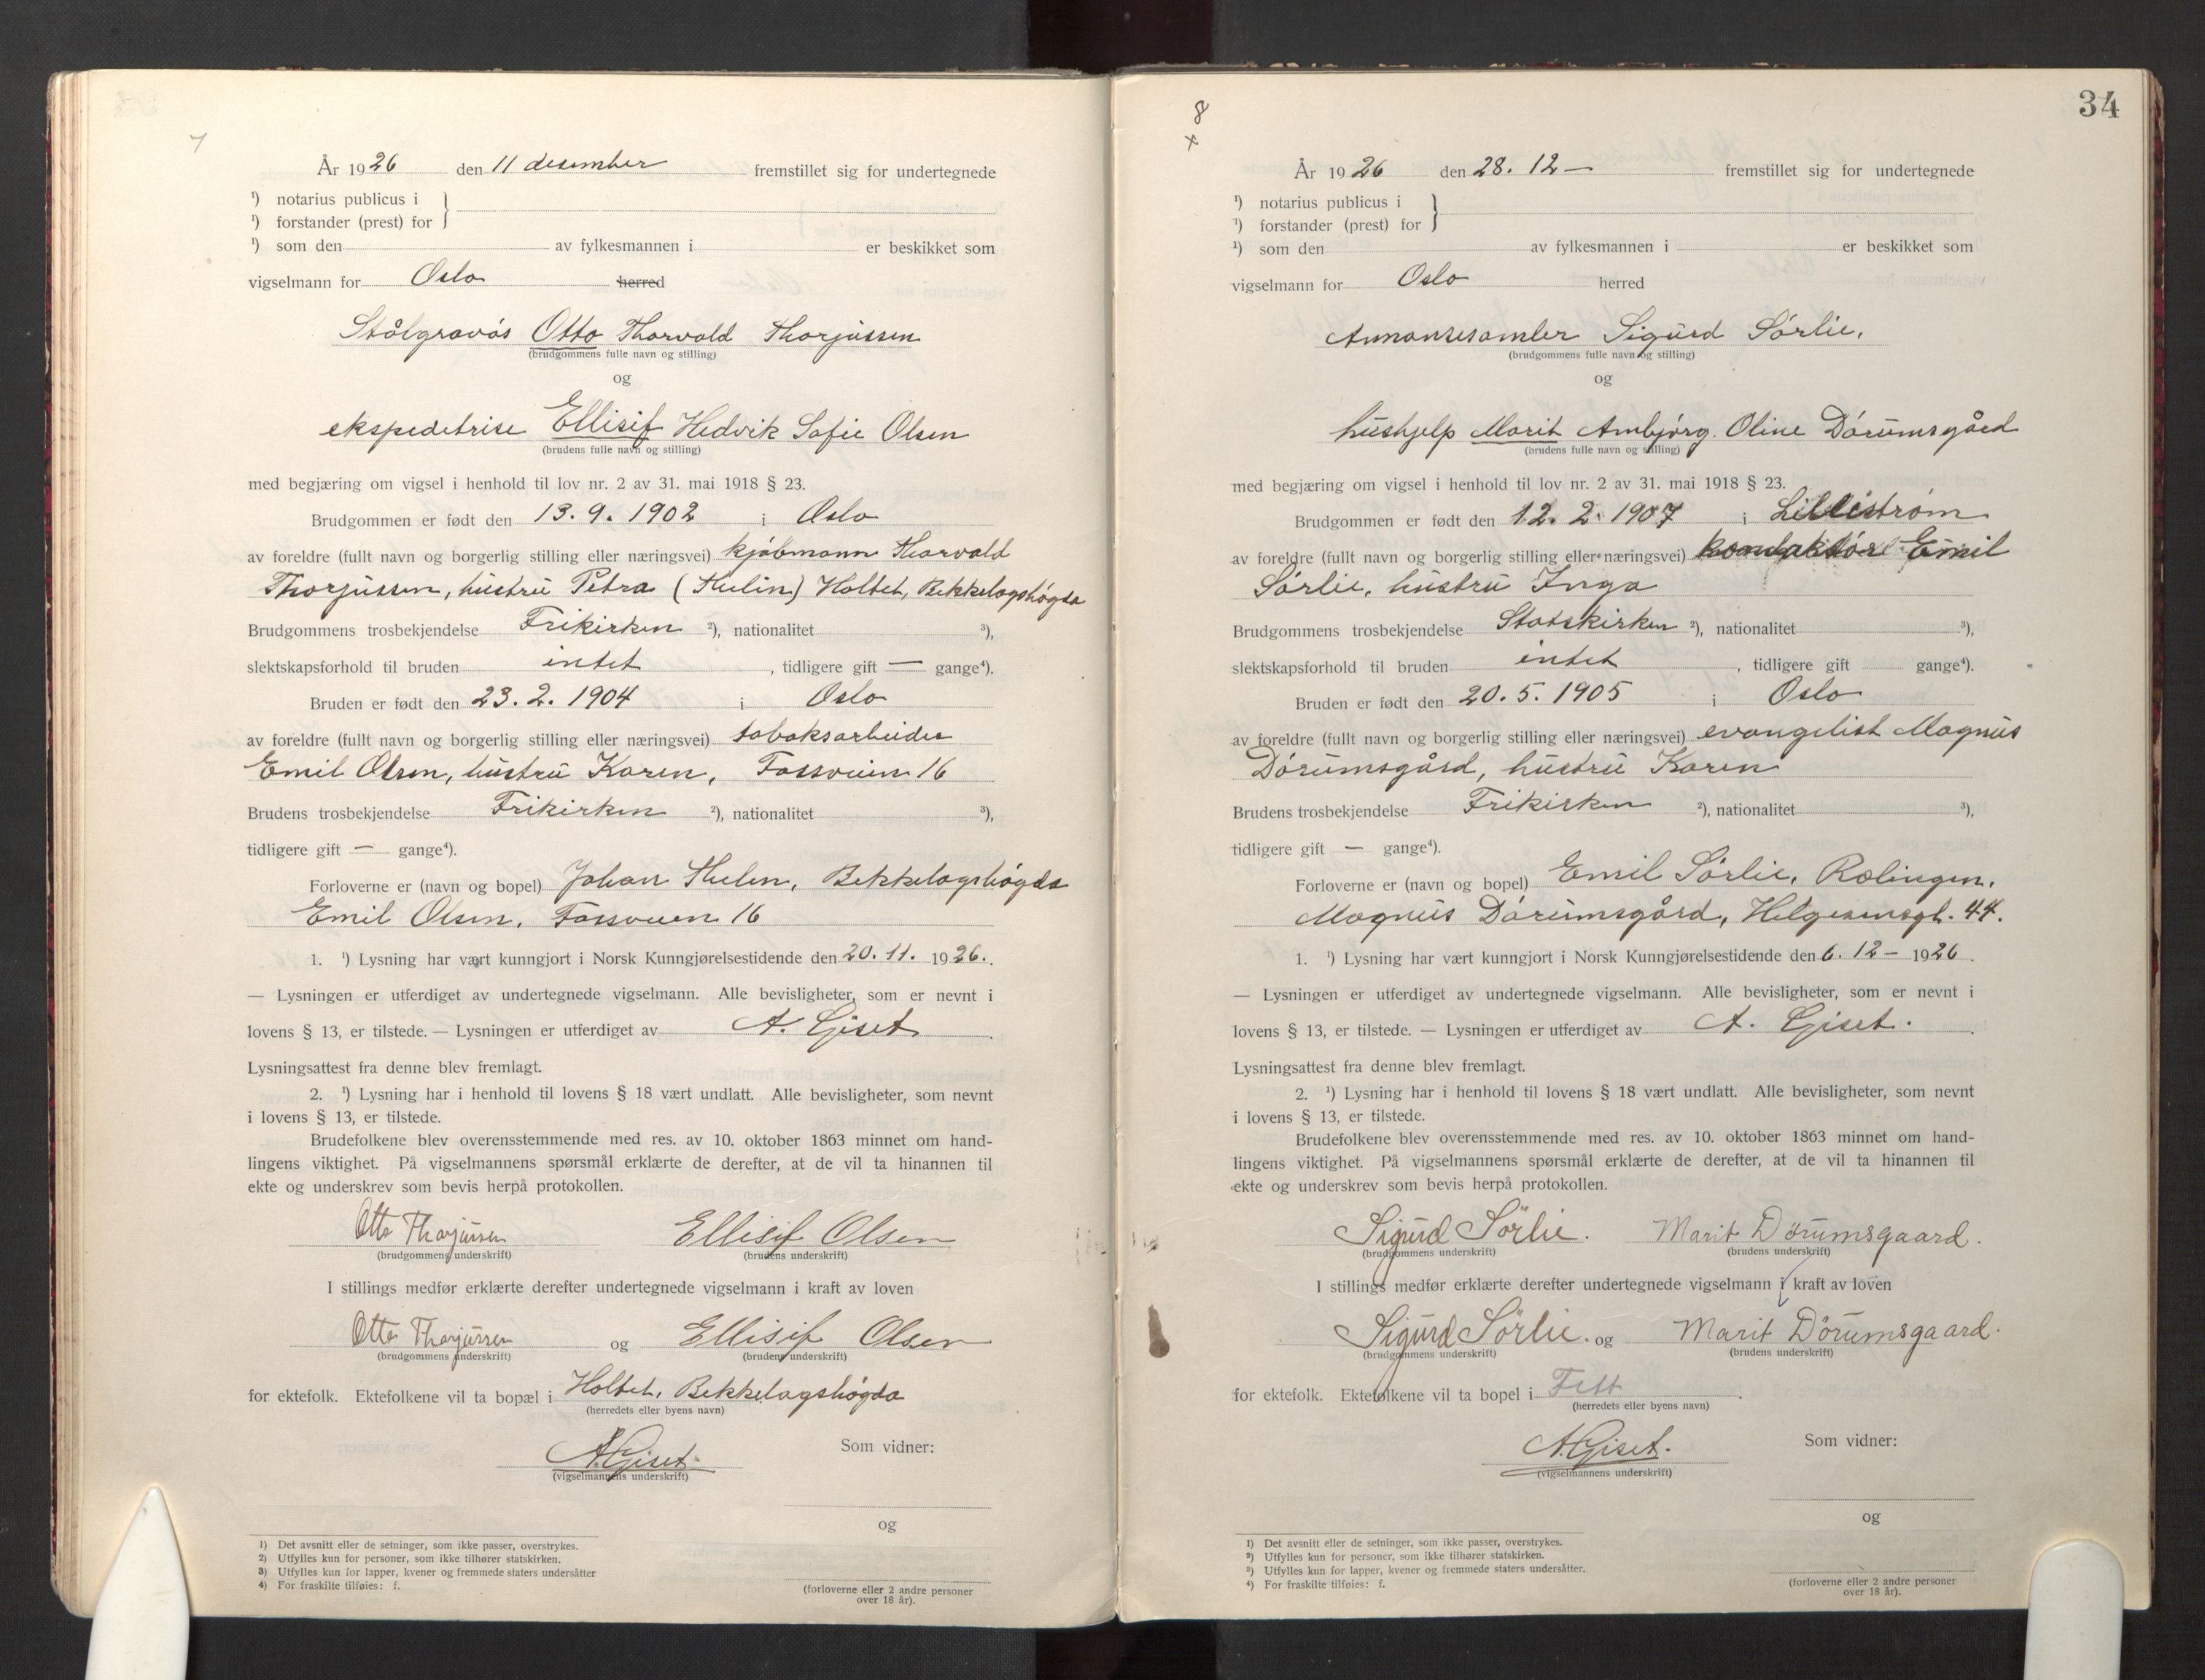 7
År 1926 den 11 desember fremstillet sig for undertegnede
¹) notarius publicus i
¹) forstander (prest) for
¹) som den av fylkesmannen i er beskikket som
vigselmann for Oslo herred
Stålgravør Otto Thorvald Thorjussen
(brudgommens fulle navn og stilling)
og
ekspeditrise Ellisif Hedvik Sofie Olsen
(brudens fulle navn og stilling)
med begjæring om vigsel i henhold til lov nr. 2 av 31. mai 1918 § 23.
Brudgommen er født den 13. 9. 1902 i Oslo
av foreldre (fullt navn og borgerlig stilling eller næringsvei) kjøbmann Thorvald
Thorjussen, hustru Petra (Thelin) Holtet, Bekkelagshøgda
Brudgommens trosbekjendelse Frikirken ²), nationalitet ³),
slektskapsforhold til bruden intet, tidligere gift — gange⁴).
Bruden er født den 23. 2. 1904 i Oslo
av foreldre (fullt navn og borgerlig stilling eller næringsvei) tobaksarbeider
Emil Olsen, hustru Karen, Fossveien 16
Brudens trosbekjendelse Frikirken ²), nationalitet ³),
tidligere gift — gange⁴).
Forloverne er (navn og bopel) Johan Thelen, Bekkelagshøgda
Emil Olsen, Fossveien 16
1. ¹) Lysning har vært kunngjort i Norsk Kunngjørelsestidende den 20. 11. 1926.
— Lysningen er utferdiget av undertegnede vigselmann. Alle bevisligheter, som er nevnt i
lovens § 13, er tilstede. — Lysningen er utferdiget av A. Giset
Lysningsattest fra denne blev fremlagt.
2. ¹) Lysning har i henhold til lovens § 18 vært undlatt. Alle bevisligheter, som nevnt
i lovens § 13, er tilstede.
Brudefolkene blev overensstemmende med res. av 10. oktober 1863 minnet om hand-
lingens viktighet. På vigselmannens spørsmål erklærte de derefter, at de vil ta hinannen til
ekte og underskrev som bevis herpå protokollen.
Otto Thorjussen Ellisif Olsen
(brudgommens underskrift) (brudens underskrift)
I stillings medfør erklærte derefter undertegnede vigselmann i kraft av loven
Otto Thorjussen og Ellisif Olsen
(brudgommens underskrift) (brudens underskrift)
for ektefolk. Ektefolkene vil ta bopæl i Holtet, Bekkelagshøgda
(herredets eller byens navn)
A. Giset. Som vidner:
(vigselmannens underskrift)
og
1) Det avsnitt eller de setninger, som ikke passer, overstrykes.
2) Utfylles kun for personer, som ikke tilhører statskirken.
3) Utfylles kun for lapper, kvener og fremmede staters undersåtter
4) For fraskilte tilføies: f.
(forloverne eller 2 andre personer
over 18 år).
34
8
x
År 1926 den 28. 12 — fremstillet sig for undertegnede
¹) notarius publicus i
¹) forstander (prest) for
¹) som den av fylkesmannen i er beskikket som
vigselmann for Oslo herred
Annonsesamler Sigurd Sørlie.
(brudgommens fulle navn og stilling)
og
hushjelp Marit Ambjørg. Oline Dørumsgård
(brudens fulle navn og stilling)
med begjæring om vigsel i henhold til lov nr. 2 av 31. mai 1918 § 23.
Brudgommen er født den 12. 2. 1907 i Lillestrøm
av foreldre (fullt navn og borgerlig stilling eller næringsvei) konduktør Emil
Sørlie, hustru Inga
Brudgommens trosbekjendelse Statskirken ²), nationalitet ³),
slektskapsforhold til bruden intet, tidligere gift gange⁴).
Bruden er født den 20. 5. 1905 i Oslo
av foreldre (fullt navn og borgerlig stilling eller næringsvei) evangelist Magnus
Dørumsgård, hustru Karen
Brudens trosbekjendelse Frikirken ²), nationalitet ³),
tidligere gift — gange⁴).
Forloverne er (navn og bopel) Emil Sørlie, Rælingen.
Magnus Dørumsgård, Helgesensgt. 44.
1. ¹) Lysning har vært kunngjort i Norsk Kunngjørelsestidende den 6. 12 — 1926.
— Lysningen er utferdiget av undertegnede vigselmann. Alle bevisligheter, som er nevnt i
lovens § 13, er tilstede. — Lysningen er utferdiget av A. Giset.
Lysningsattest fra denne blev fremlagt.
2. ¹) Lysning har i henhold til lovens § 18 vært undlatt. Alle bevisligheter, som nevnt
i lovens § 13, er tilstede.
Brudefolkene blev overensstemmende med res. av 10. oktober 1863 minnet om hand-
lingens viktighet. På vigselmannens spørsmål erklærte de derefter, at de vil ta hinannen til
ekte og underskrev som bevis herpå protokollen.
Sigurd Sørlie. Marit Dørumsgaard.
(brudgommens underskrift) (brudens underskrift)
I stillings medfør erklærte derefter undertegnede vigselmann i kraft av loven
Sigurd Sørlie. og Marit Dørumsgaard.
(brudgommens underskrift) (brudens underskrift)
for ektefolk. Ektefolkene vil ta bopel i Fett.
(herredets eller byens navn)
A. Giset. Som vidner:
(vigselmannens underskrift)
og
1) Det avsnitt eller de setninger, som ikke passer, overstrykes.
²) Utfylles kun for personer, som ikke tilhører statskirken.
³) Utfylles kun for lapper, kvener og fremmede staters undersåtter.
⁴) For fraskilte tilføies: f.
(forloverne eller 2 andre personer
over 18 år).